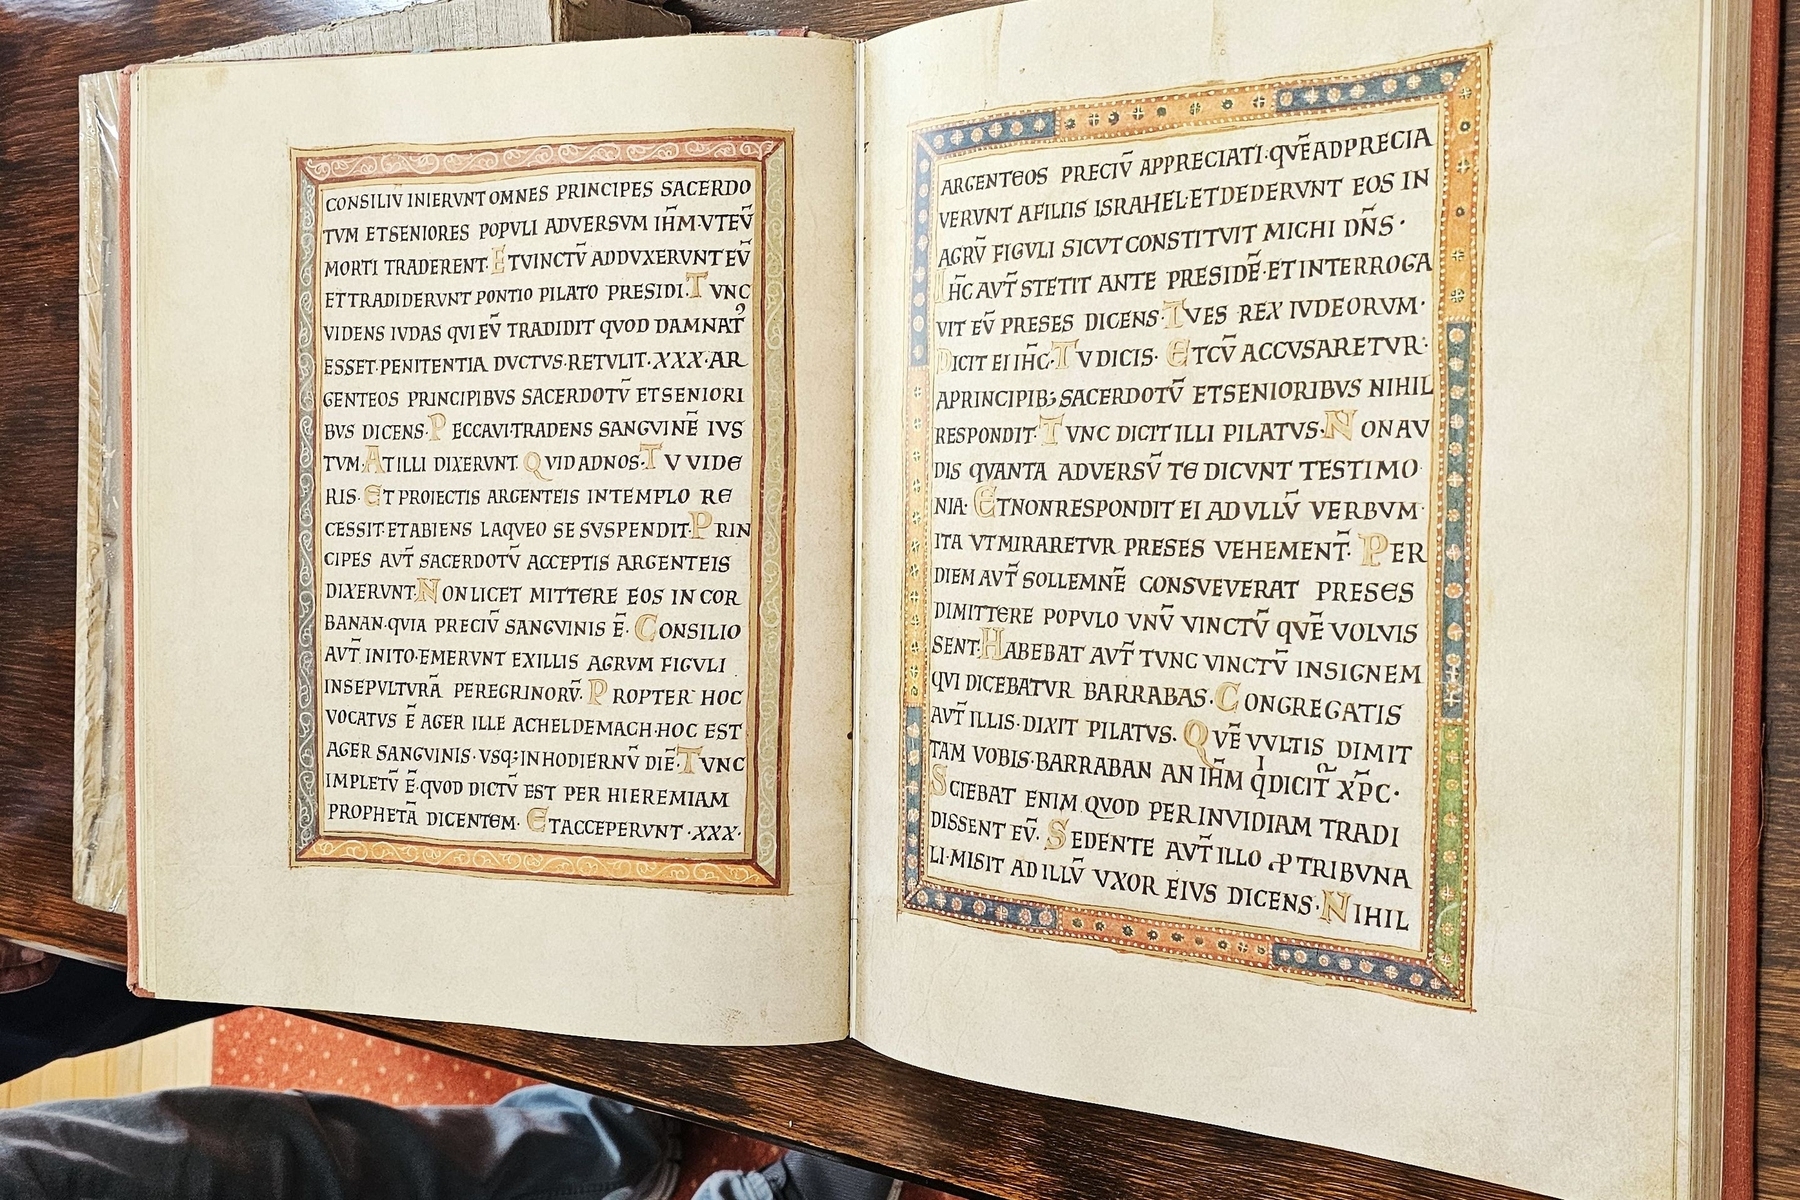 CONSILIV̄ INIERVNT OMNES PRINCIPES SACERDO
TVM ET SENIORES POPVLI ADVERSVM IH̄M·VT EV̄
MORTI TRADERENT· ET VINCTV̄ ADDVXERVNT EV̄
ET TRADIDERVNT PONTIO PILATO PRESIDI· TVNC
VIDENS IVDAS QVI EV̄ TRADIDIT QVOD DAMNATꝰ
ESSET·PENITENTIA DVCTVS·RETVLIT·XXX·AR
GENTEOS PRINCIPIBVS SACERDOTV̄ ET SENIORI
BVS DICENS· PECCAVI·TRADENS SANGVINĒ IVS
TVM· AT ILLI DIXERVNT· QVID AD NOS· TV VIDE
RIS· ET PROIECTIS ARGENTEIS IN TEMPLO RE
CESSIT·ET ABIENS LAQVEO SE SVSPENDIT· PRIN
CIPES AVT̄ SACERDOTV̄ ACCEPTIS ARGENTEIS
DIXERVNT· NON LICET MITTERE EOS IN COR
BANAN·QVIA PRECIV̄ SANGVINIS Ē· CONSILIO
AVT̄ INITO·EMERVNT EX ILLIS AGRVM FIGVLI
IN SEPVLTVRĀ PEREGRINORV̄· PROPTER HOC
VOCATVS Ē AGER ILLE ACHELDEMACH·HOC EST
AGER SANGVINIS·VSQ; IN HODIERNV̄ DIĒ· TVNC
IMPLETV̄ Ē·QVOD DICTV̄ EST PER HIEREMIAM
PROPHETĀ DICENTEM· ET ACCEPERVNT·XXX·
ARGENTEOS PRECIV̄ APPRECIATI·QVĒ ADPRECIA
VERVNT A FILIIS ISRAHEL·ET DEDERVNT EOS IN
AGRV̄ FIGVLI SICVT CONSTITVIT MICHI DN̄S·
IH̄C AVT̄ STETIT ANTE PRESIDĒ·ET INTERROGA
VIT EV̄ PRESES DICENS· TV ES REX IVDEORVM·
DICIT EI IH̄C· TV DICIS· ET CV̄ ACCVSARETVR·
A PRINCIPIB; SACERDOTV̄ ET SENIORIBVS NIHIL
RESPONDIT· TVNC DICIT ILLI PILATVS· NON AV
DIS QVANTA ADVERSV̄ TE DICVNT TESTIMO
NIA· ET NON RESPONDIT EI AD VLLV̄ VERBVM·
ITA VT MIRARETVR PRESES VEHEMENT̄· PER
DIEM AVT̄ SOLLEMNĒ CONSVEVERAT PRESES
DIMITTERE POPVLO VNV̄ VINCTV̄ QVĒ VOLVIS
SENT· HABEBAT AVT̄ TVNC VINCTV̄ INSIGNEM
QVI DICEBATVR BARRABAS· CONGREGATIS
AVT̄ ILLIS·DIXIT PILATVS· QVĒ VVLTIS DIMIT
TAM VOBIS·BARRABAN AN IH̄M Q̍ DICIT᷒ XP̄C·
SCIEBAT ENIM QVOD PER INVIDIAM TRADI
DISSENT EV̄· SEDENTE AVT̄ ILLO ꝓ TRIBVNA
LI·MISIT AD ILLV̄ VXOR EIVS DICENS· NIHIL